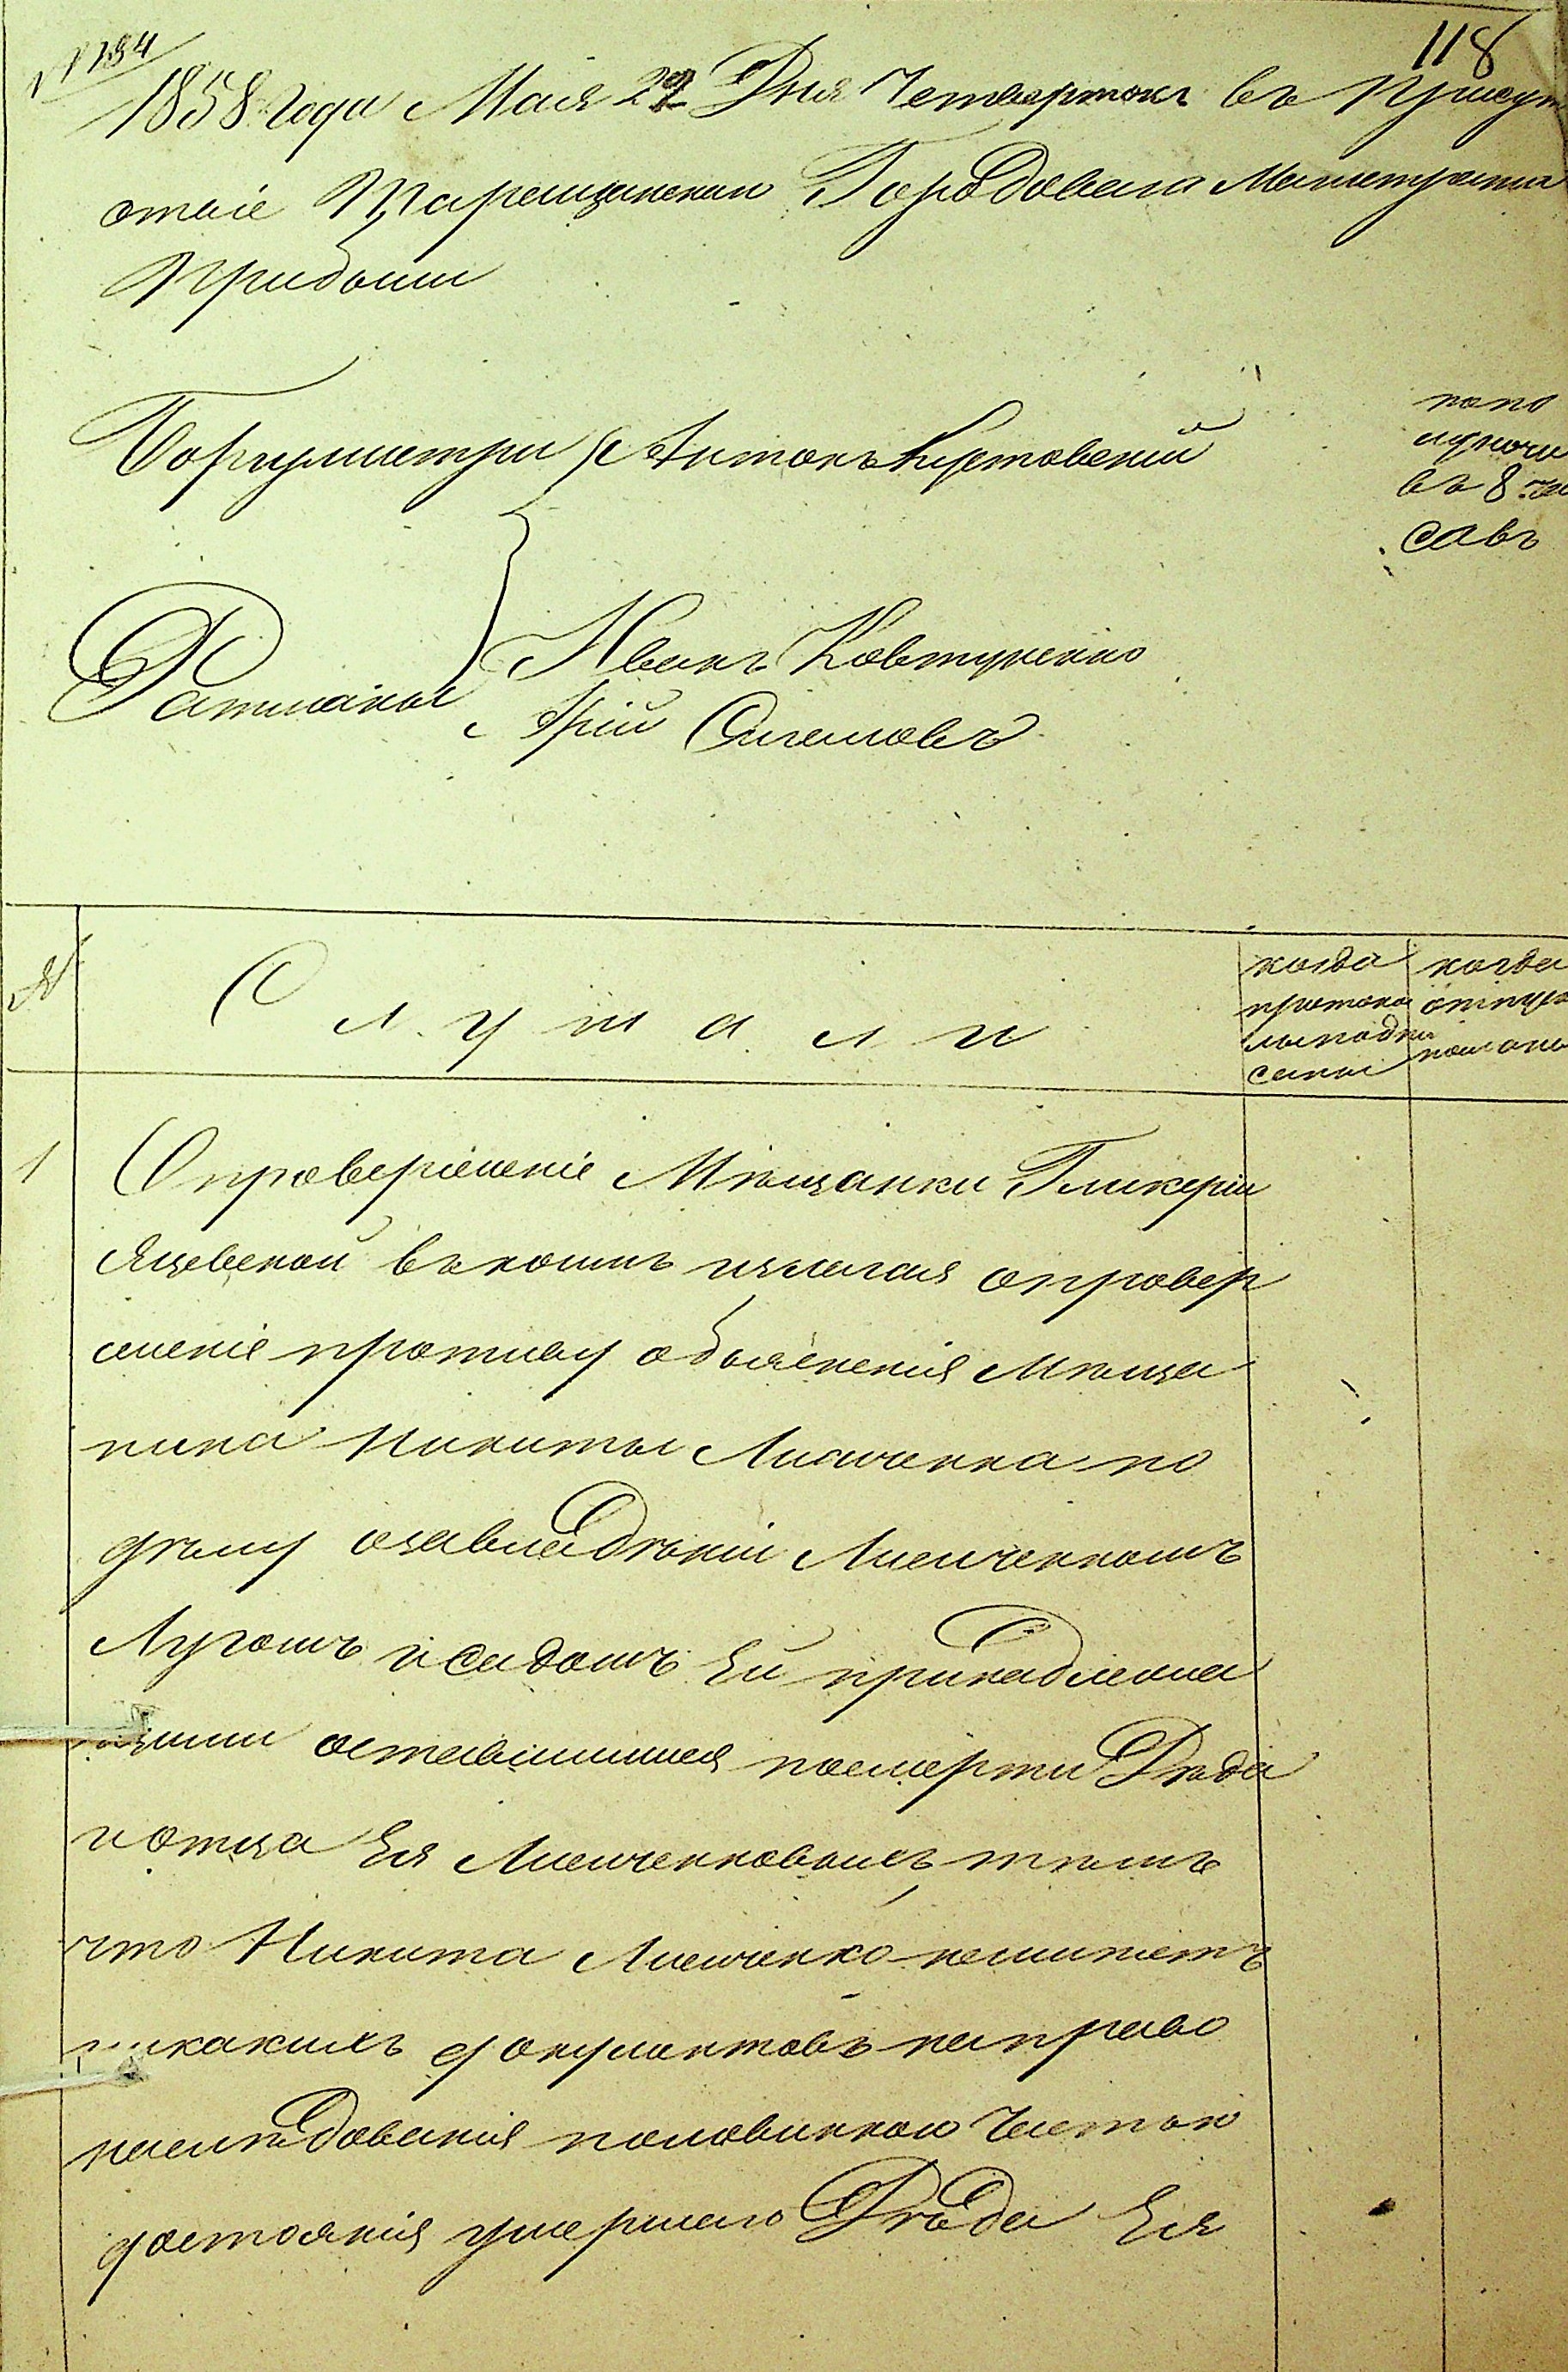 № 184
118
1858 года Мая 22 Дня Четвертокъ въ Присут
ствіе Царещанскаго Городоваго Магистрата
Прибыли
Боргумистри Антонъ
Ратманы
Иванъ Ковтуненко
попо
луночи
въ 8 ча
совъ
№
Слушали
когда
протоко
лы подпи
саны
когда
отпуск
1
Опроверженіе Мѣщанки Гликеріи
Яцевской въ коемъ излагая опровер
женіе противу объясненія Мѣща
нина Никиты Лисиченка по
дѣлу озавладѣніи Лисиченкомъ
Лугомъ и садомъ Ей принадлежа
щими оставшимися посмерти Дѣда
и отца Ея Лисиченковыхъ тѣмъ
что Никита Лисиченко неимѣетъ
никакихъ документовъ направо
наслѣдованія половинною Частью
достоянія умершаго Дѣда Ея